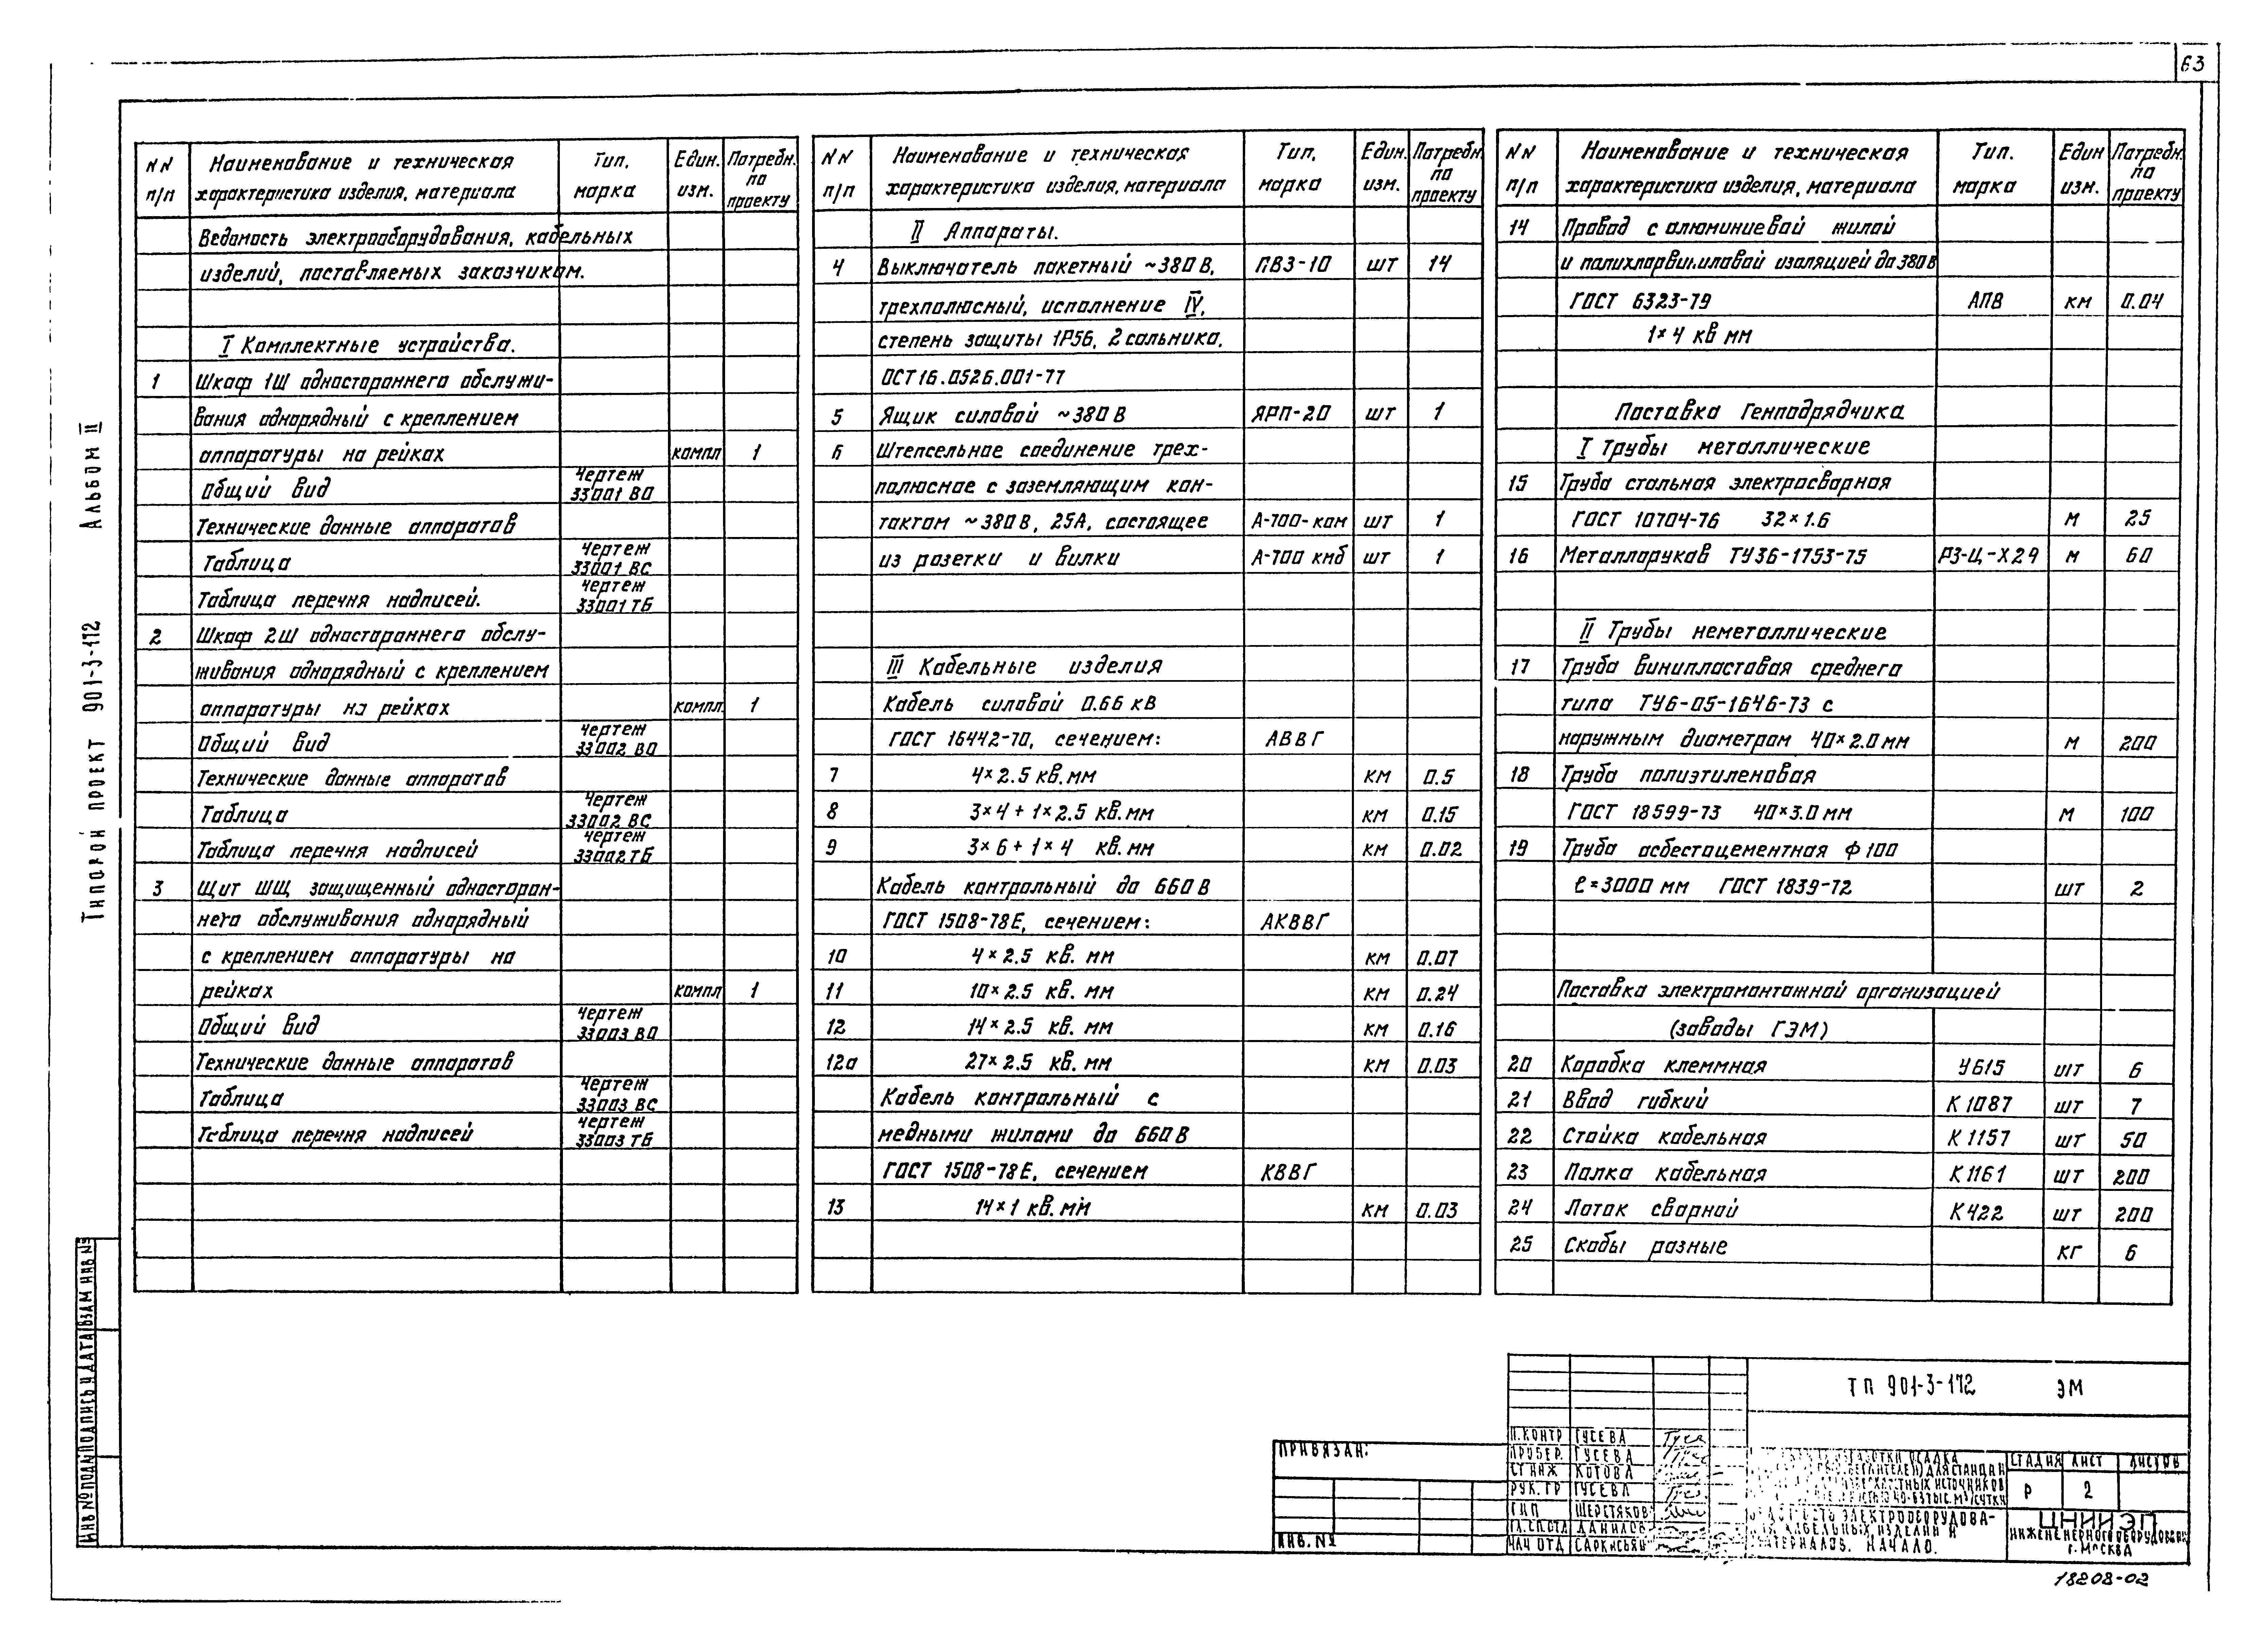 63
Альбом II
Типовой проект 901-3-172
NN п/п Наименование и техническая характеристика изделия, материала Тип, марка Един. изм. Потребн. по проекту
Ведомость электрооборудования, кабельных
изделий, поставляемых заказчиком.
I Комплектные устройства.
1 Шкаф 1Ш одностороннего обслужи-
вания однорядный с креплением
аппаратуры на рейках компл 1
Общий вид Чертеж 33001 ВО
Технические данные аппаратов
Таблица Чертеж 33001 ВС
Таблица перечня надписей. Чертеж 33001 ТБ
2 Шкаф 2Ш одностороннего обслу-
живания однорядный с креплением
аппаратуры на рейках компл. 1
Общий вид Чертеж 33002 ВО
Технические данные аппаратов
Таблица Чертеж 33002 ВС
Таблица перечня надписей Чертеж 33002 ТБ
3 Щит ШЩ защищенный односторон-
него обслуживания однорядный
с креплением аппаратуры на
рейках компл 1
Общий вид Чертеж 33003 ВО
Технические данные аппаратов
Таблица Чертеж 33003 ВС
Таблица перечня надписей Чертеж 33003 ТБ
NN п/п Наименование и техническая характеристика изделия, материала Тип, марка Един. изм. Потребн. по проекту
II Аппараты.
4 Выключатель пакетный ~380 В, ПВ3-10 шт 14
трехполюсный, исполнение IV,
степень защиты 1Р56, 2 сальника,
ОСТ 16.0526.001-77
5 Ящик силовой ~380 В ЯРП-20 шт 1
6 Штепсельное соединение трех-
полюсное с заземляющим кон-
тактом ~380 В, 25А, состоящее А-700-ком шт 1
из розетки и вилки А-700 кмб шт 1
III Кабельные изделия
Кабель силовой 0.66 кВ
ГОСТ 16442-70, сечением: АВВГ
7 4×2.5 кв.мм км 0.5
8 3×4+1×2.5 кв.мм км 0.15
9 3×6+1×4 кв.мм км 0.02
Кабель контрольный до 660 В
ГОСТ 1508-78Е, сечением: АКВВГ
10 4×2.5 кв. мм км 0.07
11 10×2.5 кв. мм км 0.24
12 14×2.5 кв. мм км 0.16
12а 27×2.5 кв. мм км 0.03
Кабель контрольный с
медными жилами до 660 В
ГОСТ 1508-78Е, сечением КВВГ
13 14×1 кв.мм км 0.03
NN п/п Наименование и техническая характеристика изделия, материала Тип. марка Един изм. Потребн. по проекту
14 Провод с алюминиевой жилой
и полихлорвиниловой изоляцией до 380 В
ГОСТ 6323-79 АПВ км 0.04
1×4 кв мм
Поставка Генподрядчика
I Трубы металлические
15 Труба стальная электросварная
ГОСТ 10704-76 32×1.6 м 25
16 Металлорукав ТУ36-1753-75 РЗ-Ц-Х29 м 60
II Трубы неметаллические
17 Труба винипластовая среднего
типа ТУ6-05-1646-73 с
наружным диаметром 40×2.0 мм м 200
18 Труба полиэтиленовая
ГОСТ 18599-73 40×3.0 мм м 100
19 Труба асбестоцементная ф 100
ℓ=3000 мм ГОСТ 1839-72 шт 2
Поставка электромонтажной организацией
(заводы ГЭМ)
20 Коробка клеммная У615 шт 6
21 Ввод гибкий К 1087 шт 7
22 Стойка кабельная К 1157 шт 50
23 Полка кабельная К 1161 шт 200
24 Лоток сварной К 422 шт 200
25 Скобы разные кг 6
ИНВ № ПОДЛ ПОДПИСЬ И ДАТА ВЗАМ ИНВ №
ПРИВЯЗАН:
ИНВ. №
ТП 901-3-172 ЭМ
Н.КОНТР ГУСЕВА
ПРОВЕР. ГУСЕВА
СТ ИНЖ КОТОВА
РУК. ГР ГУСЕВА
ГИП ШЕРСТЯКОВ
ГЛ.СПЕЦ ДАНИЛОВ
НАЧ ОТД САРКИСЬЯН
ОСАДКА
ДЛЯ СТАНЦИИ
ИСТОЧНИКОВ
40-63 ТЫС. М³/СУТКИ
ЭЛЕКТРООБОРУДОВА-
КАБЕЛЬНЫХ ИЗДЕЛИЙ И
МАТЕРИАЛОВ. НАЧАЛО.
СТАДИЯ ЛИСТ ЛИСТОВ
Р 2
ЦНИИЭП
ИНЖЕНЕРНОГО ОБОРУДОВАН
Г. МОСКВА
18208-02